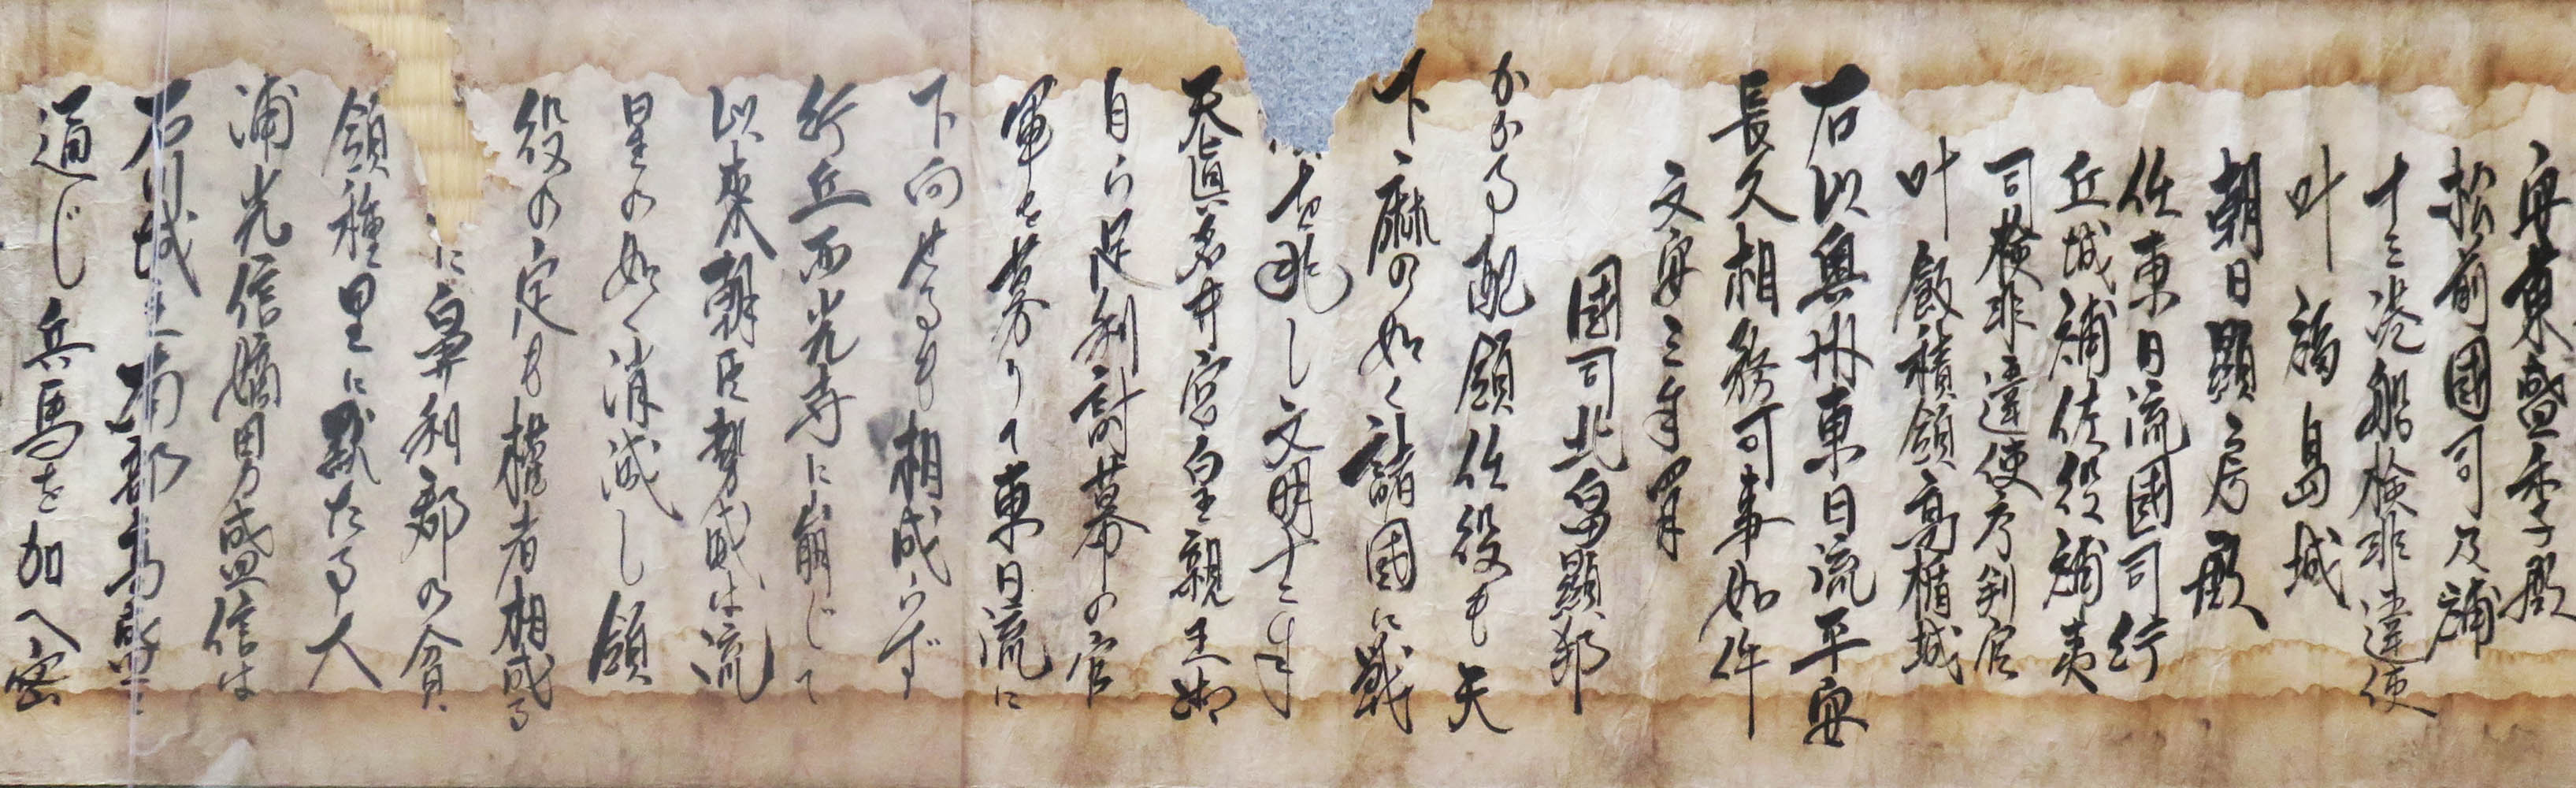 安東盛季殿
松前國司及補
十三港船検非違使
叶 福島城
朝日顕房殿
任東日流國司行
丘城補佐役補夷
司検非違使庁判官
叶 飯積領高楯城
右以奥州東日流平安
長久相務可事如件
文安三年四月
國司北畠顕邦
かかる配領任役も天
下麻の如く諸國に戦
起し文明十二年
天眞名井宮皇親王御
自ら足利討幕の官
軍を募りて東日流に
下向せるも相成らず
行丘西光寺に崩じて
以来朝臣勢威は流
星の如く消滅し領
役の定も権者相成る
に鼻利郡の貪
領種里に黙たる大
浦光信嫡男盛信は
石川城主南部高信に
通じ兵馬を加へ密